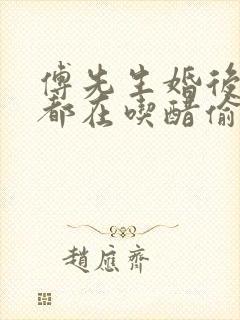 傅先生婚後
都在喫醋偷
趙應齊